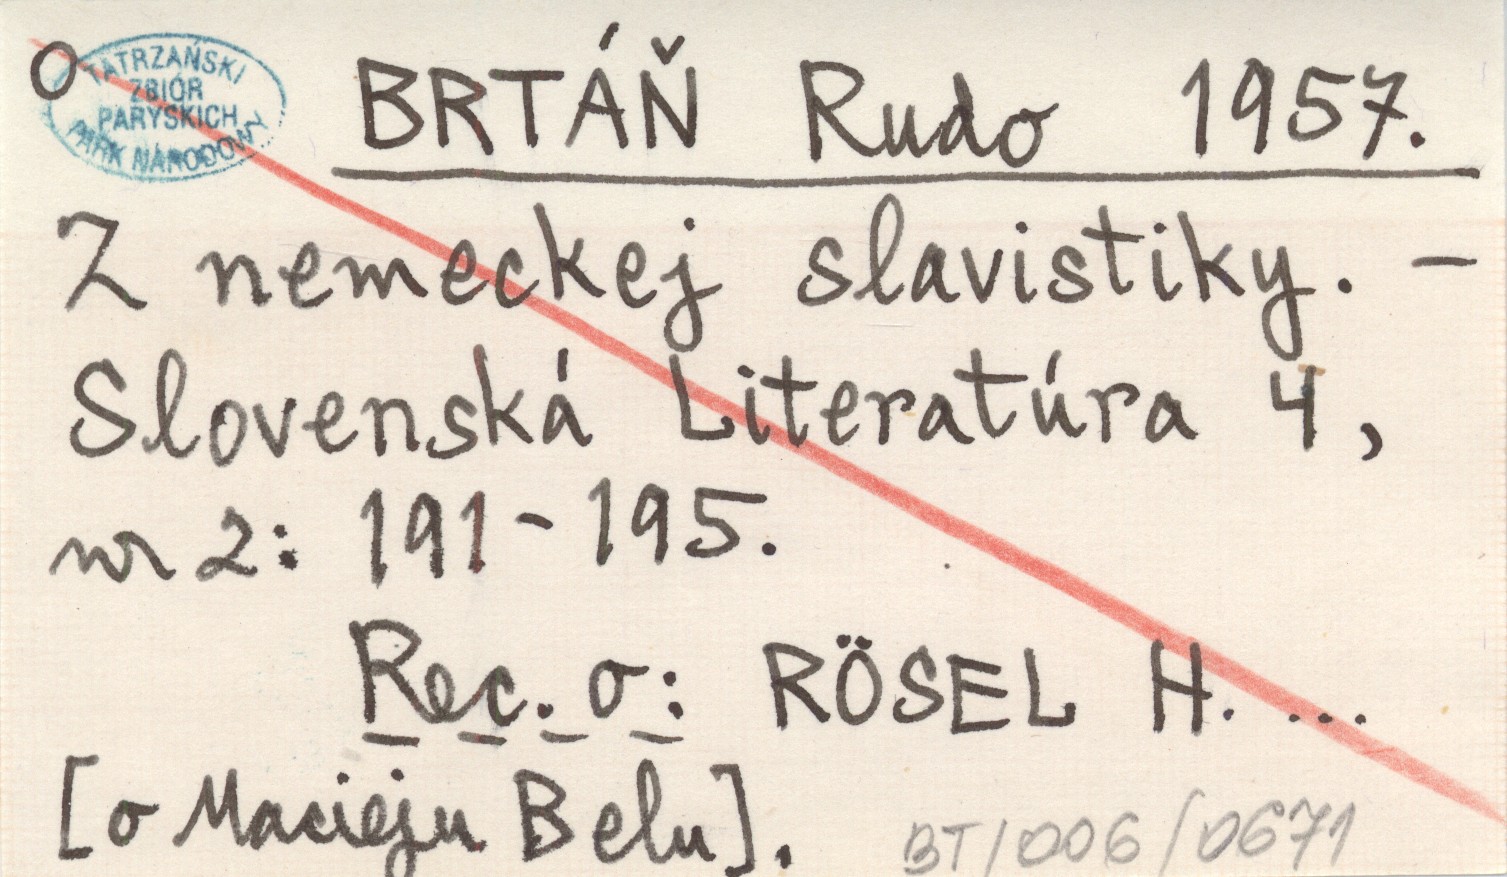 O
TATRZAŃSKI
ZBIÓR
PARYSKICH
PARK NARODOWY
BRTÁŇ Rudo 1957.
Z nemeckej slavistiky. –
Slovenská Literatúra 4,
nr 2: 191-195.
Rec. o: RÖSEL H. ...
[o Macieju Belu].
BT/006/0671